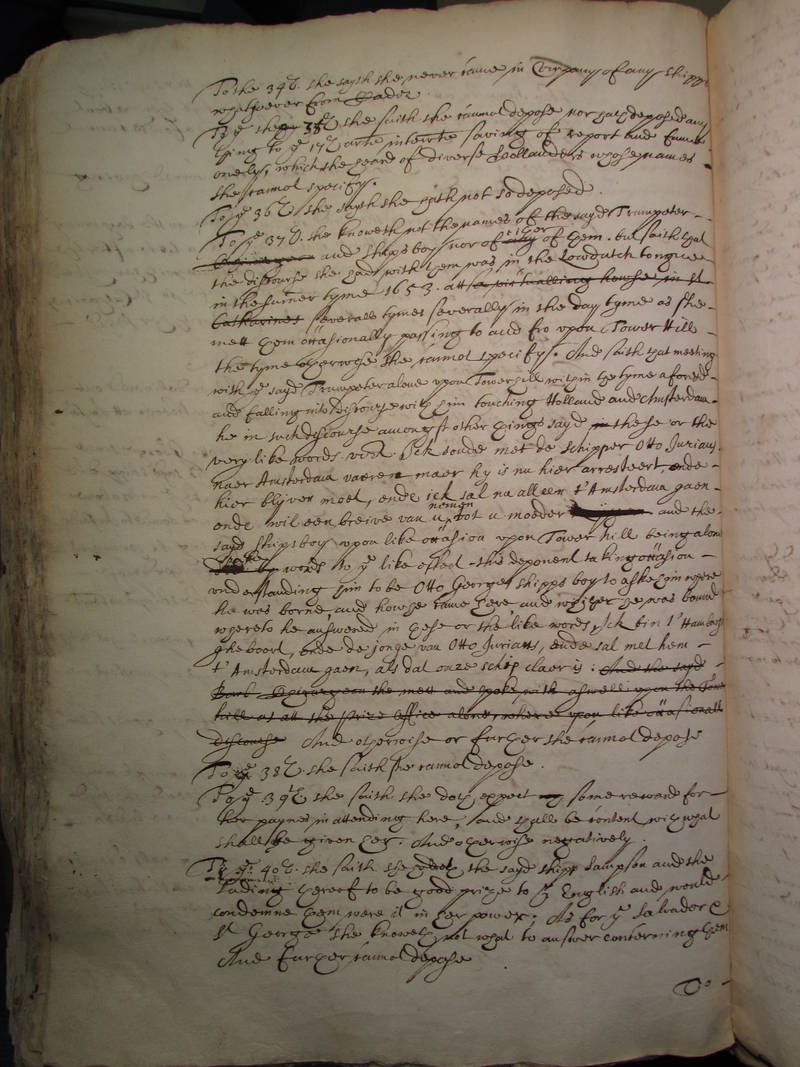 To the 34th. she sayth she never came in Company of any shipps
whatsoever from Cadez
To ye 35th she saith she cannot depose nor hath deposed any
thing to ye 17th arte interrte saving of report and
onely, which she heard of diverse Hollanders whose names
she cannot specify.
To ye 36th she sayth she hath not so deposed.
To ye 37th. she knoweth not the names of the sayd Trumpeter
and shipps boy nor of either of them. but saith that
the discourse she had with them was in the Lowdutch tongue
in the summer tyme 1653. att a victualling howse in St
Catharines severall tymes severally in the day tyme as she
mett them occasionally passing to and fro upon Tower Hill
the tyme otherwise she cannot specify. And saith that meeting
with ye sayd Trumpeter alone upon Towerhill within the tyme aforesd
and falling into discourse with him touching Holland and Amsterdam
he in such discourse amongst other things sayd in these or the
very like words vizt Ick soude met de schipper Otto Jurians
naer Amsterdam vaeren maer hy is nu hier arresteert, ende
hier blijven moet, ende ick sal nu alleen t'Amsterdam gaen
ende wil een breive van u nemen tot u modder and the
sayd shipsboy upon like occasion upon Tower hill being alone
spoke words to ye like effect this deponent taking occasion
understanding him to be Otto Georges shipps boy to aske him where
he was borne, and how he came here, and whither he was bound
whereto he answered in these or the like words, Ick bin t'Hamborgh
gheboort, ende de jonge van Otto Jurians, ende sal met hem
t'Amsterdam gaen, als dat onze schip claer is: And the sayd
she mett and spoke with aswell upon the Tower
hill as att the Prize Office alone, where upon like occasionall
discourse And otherwise or further she cannot depose
To ye 38th. she saith she cannot depose.
To ye 39th she saith she doth expect some reward for
her paynes in attending here, and shalbe content with what
shall be given her. And otherwise negatively.
To ye 40th. she saith she the sayd shipp Sampson and the
lading thereof to be good prize to ye English and would
condemne them were it in her power. As for ye Salvador &
St George she knoweth not what to answer concerning them
And further cannot depose
To